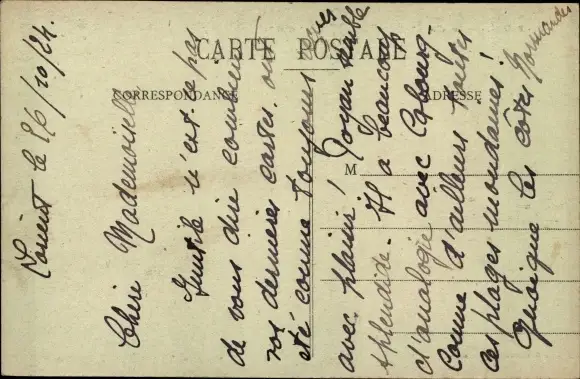 CARTE POSTALE
CORRESPONDANCE
ADRESSE
M
Lorient le 26/10/24.
Chère Mademoiselle
Inutile n'est-ce pas
de vous dire combien
vos dernières cartes ont
été comme toujours
avec plaisir! Royan semble
splendide. Il a beaucoup
d'analogie avec Cabourg.
Comme d'ailleurs toutes
ces plages mondaines!
Quoique les côtes Normandes